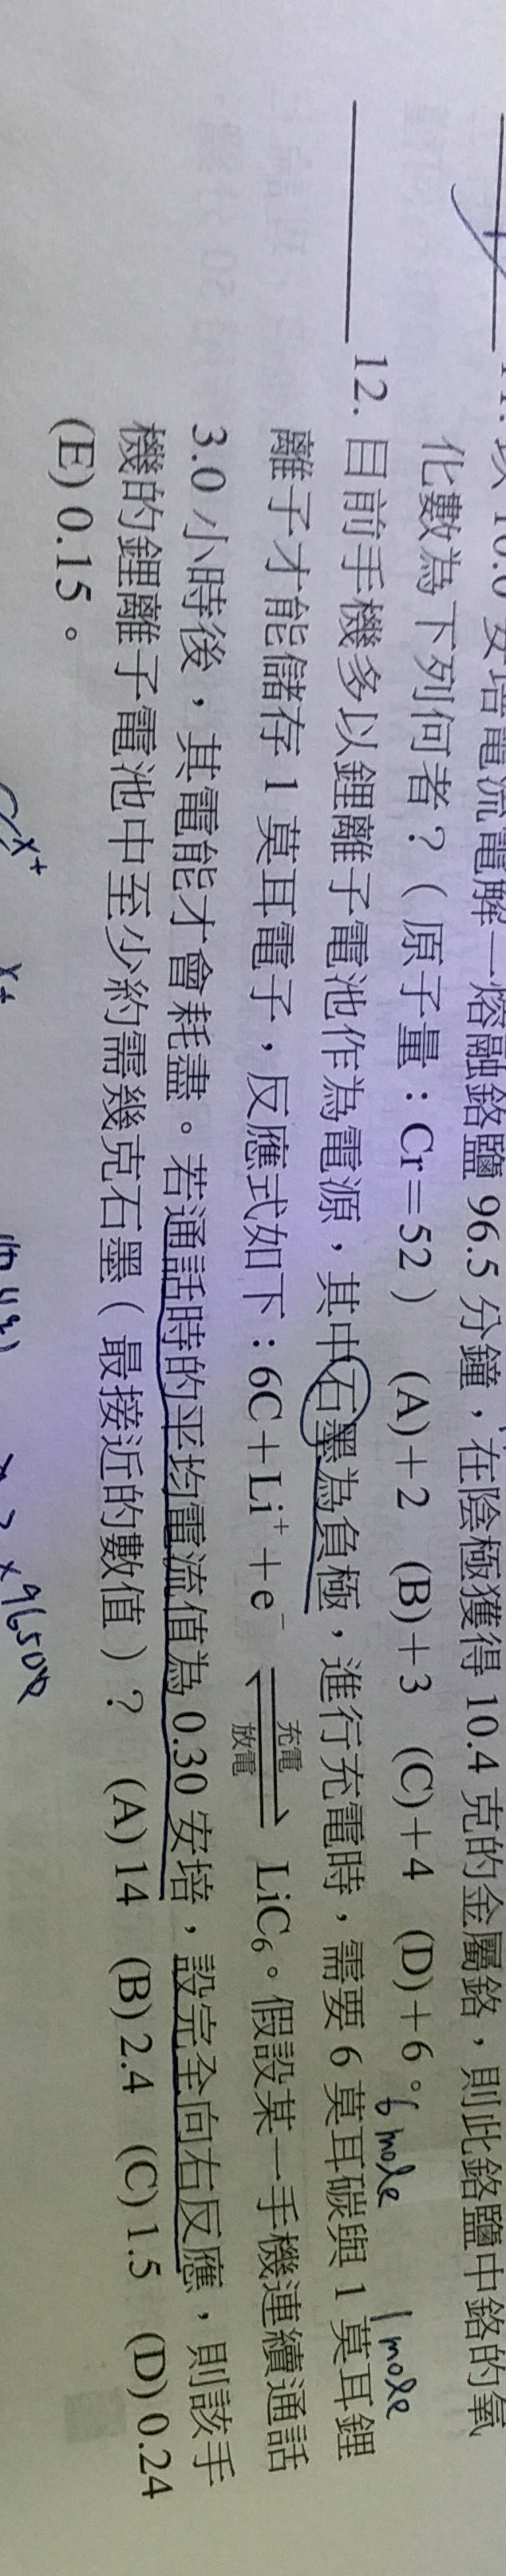 11. 以 10.0 安培電流電解一熔融鉻鹽 96.5 分鐘，在陰極獲得 10.4 克的金屬鉻，則此鉻鹽中鉻的氧
化數為下列何者？（原子量：Cr=52） (A)+2 (B)+3 (C)+4 (D)+6。
6 mole 1 mole
12. 目前手機多以鋰離子電池作為電源，其中石墨為負極，進行充電時，需要 6 莫耳碳與 1 莫耳鋰
離子才能儲存 1 莫耳電子，反應式如下：6C+Li⁺+e⁻ 充電 ⇌ 放電 LiC₆。假設某一手機連續通話
3.0 小時後，其電能才會耗盡。若通話時的平均電流值為 0.30 安培，設完全向右反應，則該手
機的鋰離子電池中至少約需幾克石墨（最接近的數值）？ (A)14 (B)2.4 (C)1.5 (D)0.24
(E)0.15。